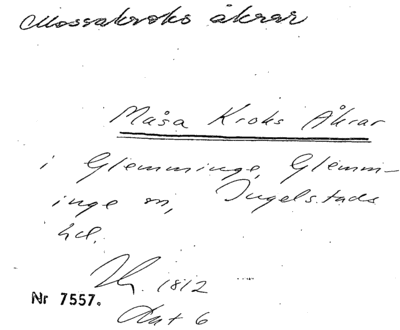 Mossakroks åkrar
Måsa Kroks Åkrar
i Glemminge, Glemm-
inge sn, Ingelstads
hd.
1812
Nr 7557.
Akt 6